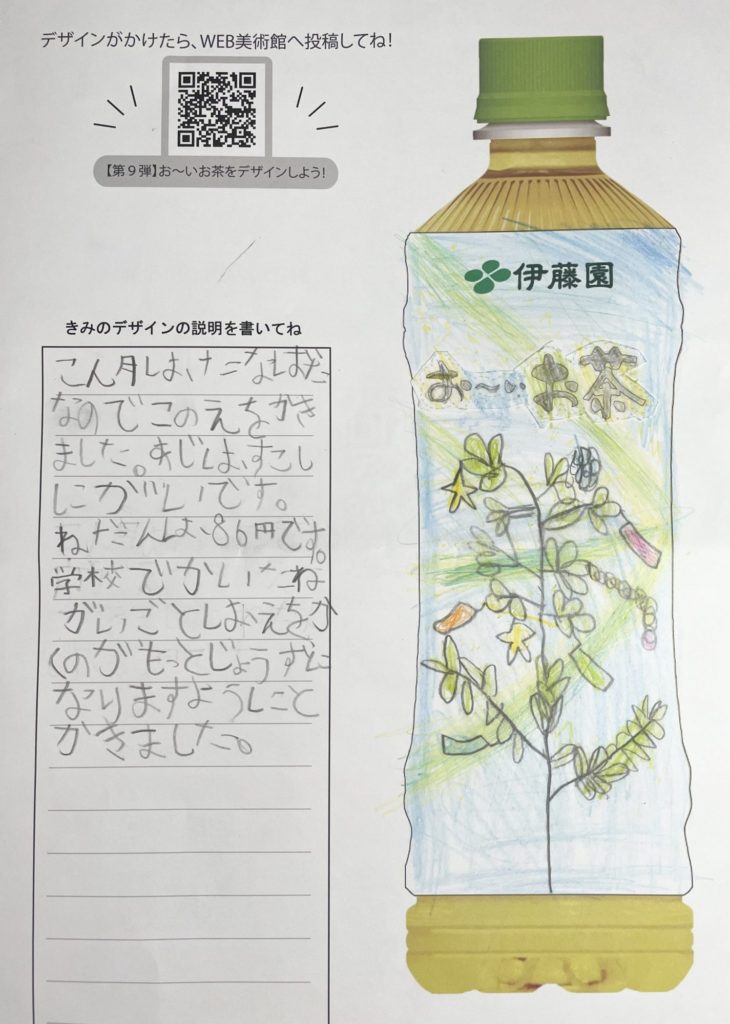 デザインがかけたら、WEB美術館へ投稿してね!
【第9弾】お～いお茶をデザインしよう!
きみのデザインの説明を書いてね
こん月は、たなばた
なのでこのえをかき
ました。あじは、すこし
にがいです。
ねだんは、86円です。
学校でかいたね
がいごとはえをか
くのがもっとじょうずに
なりますようにこと
かきました。
伊藤園
お～いお茶